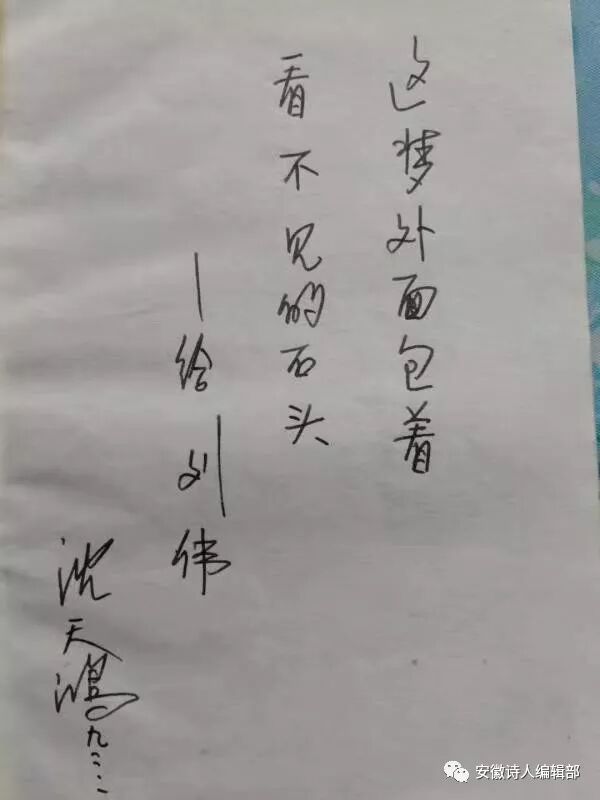 这梦外面包着
看不见的石头
—给刘伟
沈天鸿
九三.
安徽诗人编辑部